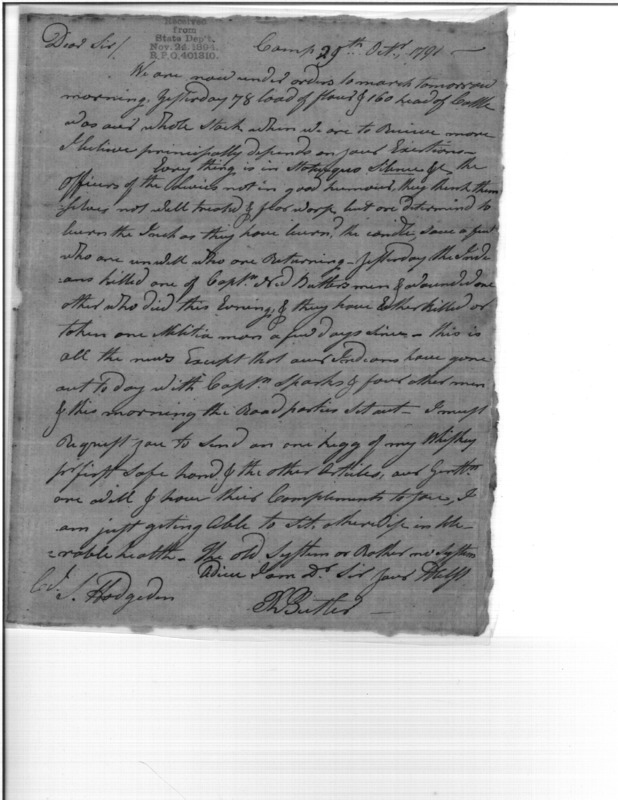 Received
from
State Dep't,
Nov. 24, 1894.
R.P.O. 401310.
Dear Sir/ Camp 29th Octr, 1791 —
We are now under orders to march tomorrow
morning, yesterday 78 load of flour & 160 head of Cattle
was our whole Stock when we are to Receive more
I believe principally depends on your Exertions —
Every thing is in Silence &c, the
officers of the levies not in good humour, they think them
selves not well treated & worse, but are determind to
burn the Inch as they have burnd the candle, save a few
who are unwell who are Returning — yesterday the Indi
=ans killed one of Captn Butlers men & wounded one
other who died this Evning, & they have Either killed or
taken one Militia man a few days since — this is
all the news Except that our Indians have gone
out to day with Captn Sparks & four other men
& this morning the Road parties Set out — I must
Request you to Send on one kegg of my Whiskey
pr first Safe hand & the other Articles, our Gentn
are well & have their Compliments to you, I
am just geting Able to Sit, otherwise in tole
=rable health — The old System or Rather no System
Adieu I am Dr Sir your
Col. S. Hodgdon
RdButler —